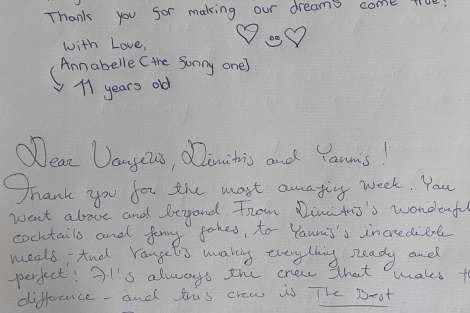 Thank you for making our dreams come true!
With Love,
Annabelle (the sunny one)
11 years old
Dear Vangelis, Dimitris and Yannis!
Thank you for the most amazing week. You
went above and beyond. From Dimitris's wonderful
cocktails and funny jokes, to Yannis's incredible
meals - And Vangelis making everything ready and
perfect! It's always the crew that makes th
difference - and this crew is The Best